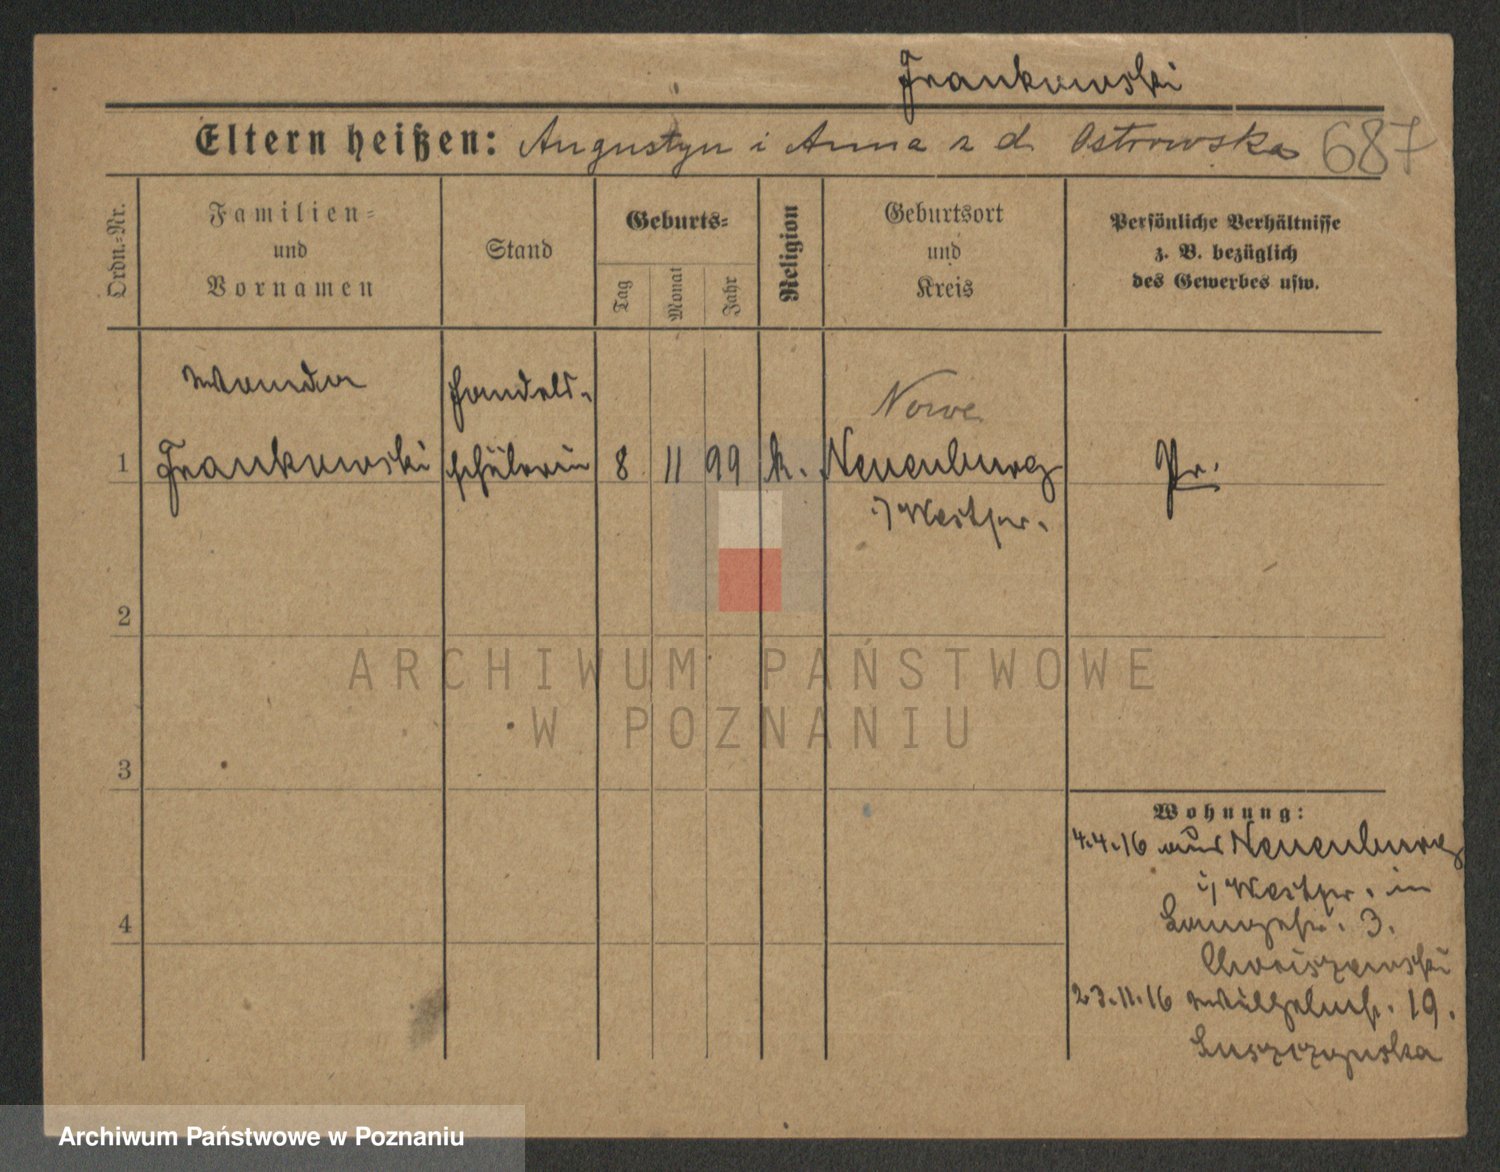 Frankowski
Eltern heißen: Augustyn i Anna z d. Ostrowska 687
Ordn.=Nr.
Familien=
und
Vornamen
Stand
Geburts=
Tag
Monat
Jahr
Religion
Geburtsort
und
Kreis
Persönliche Verhältnisse
z. B. bezüglich
des Gewerbes usw.
Wanda
Handels-
Nowe
1 Frankowski schülerin 8 11 99 k. Neuenburg Pr.
i/Westpr.
2
ARCHIWUM PAŃSTWOWE
W POZNANIU
3
Wohnung:
4.4.16 aus Neuenburg
i/Westpr. in
4
Langestr. 3.
23.11.16 Wilhelmstr. 19.
Archiwum Państwowe w Poznaniu